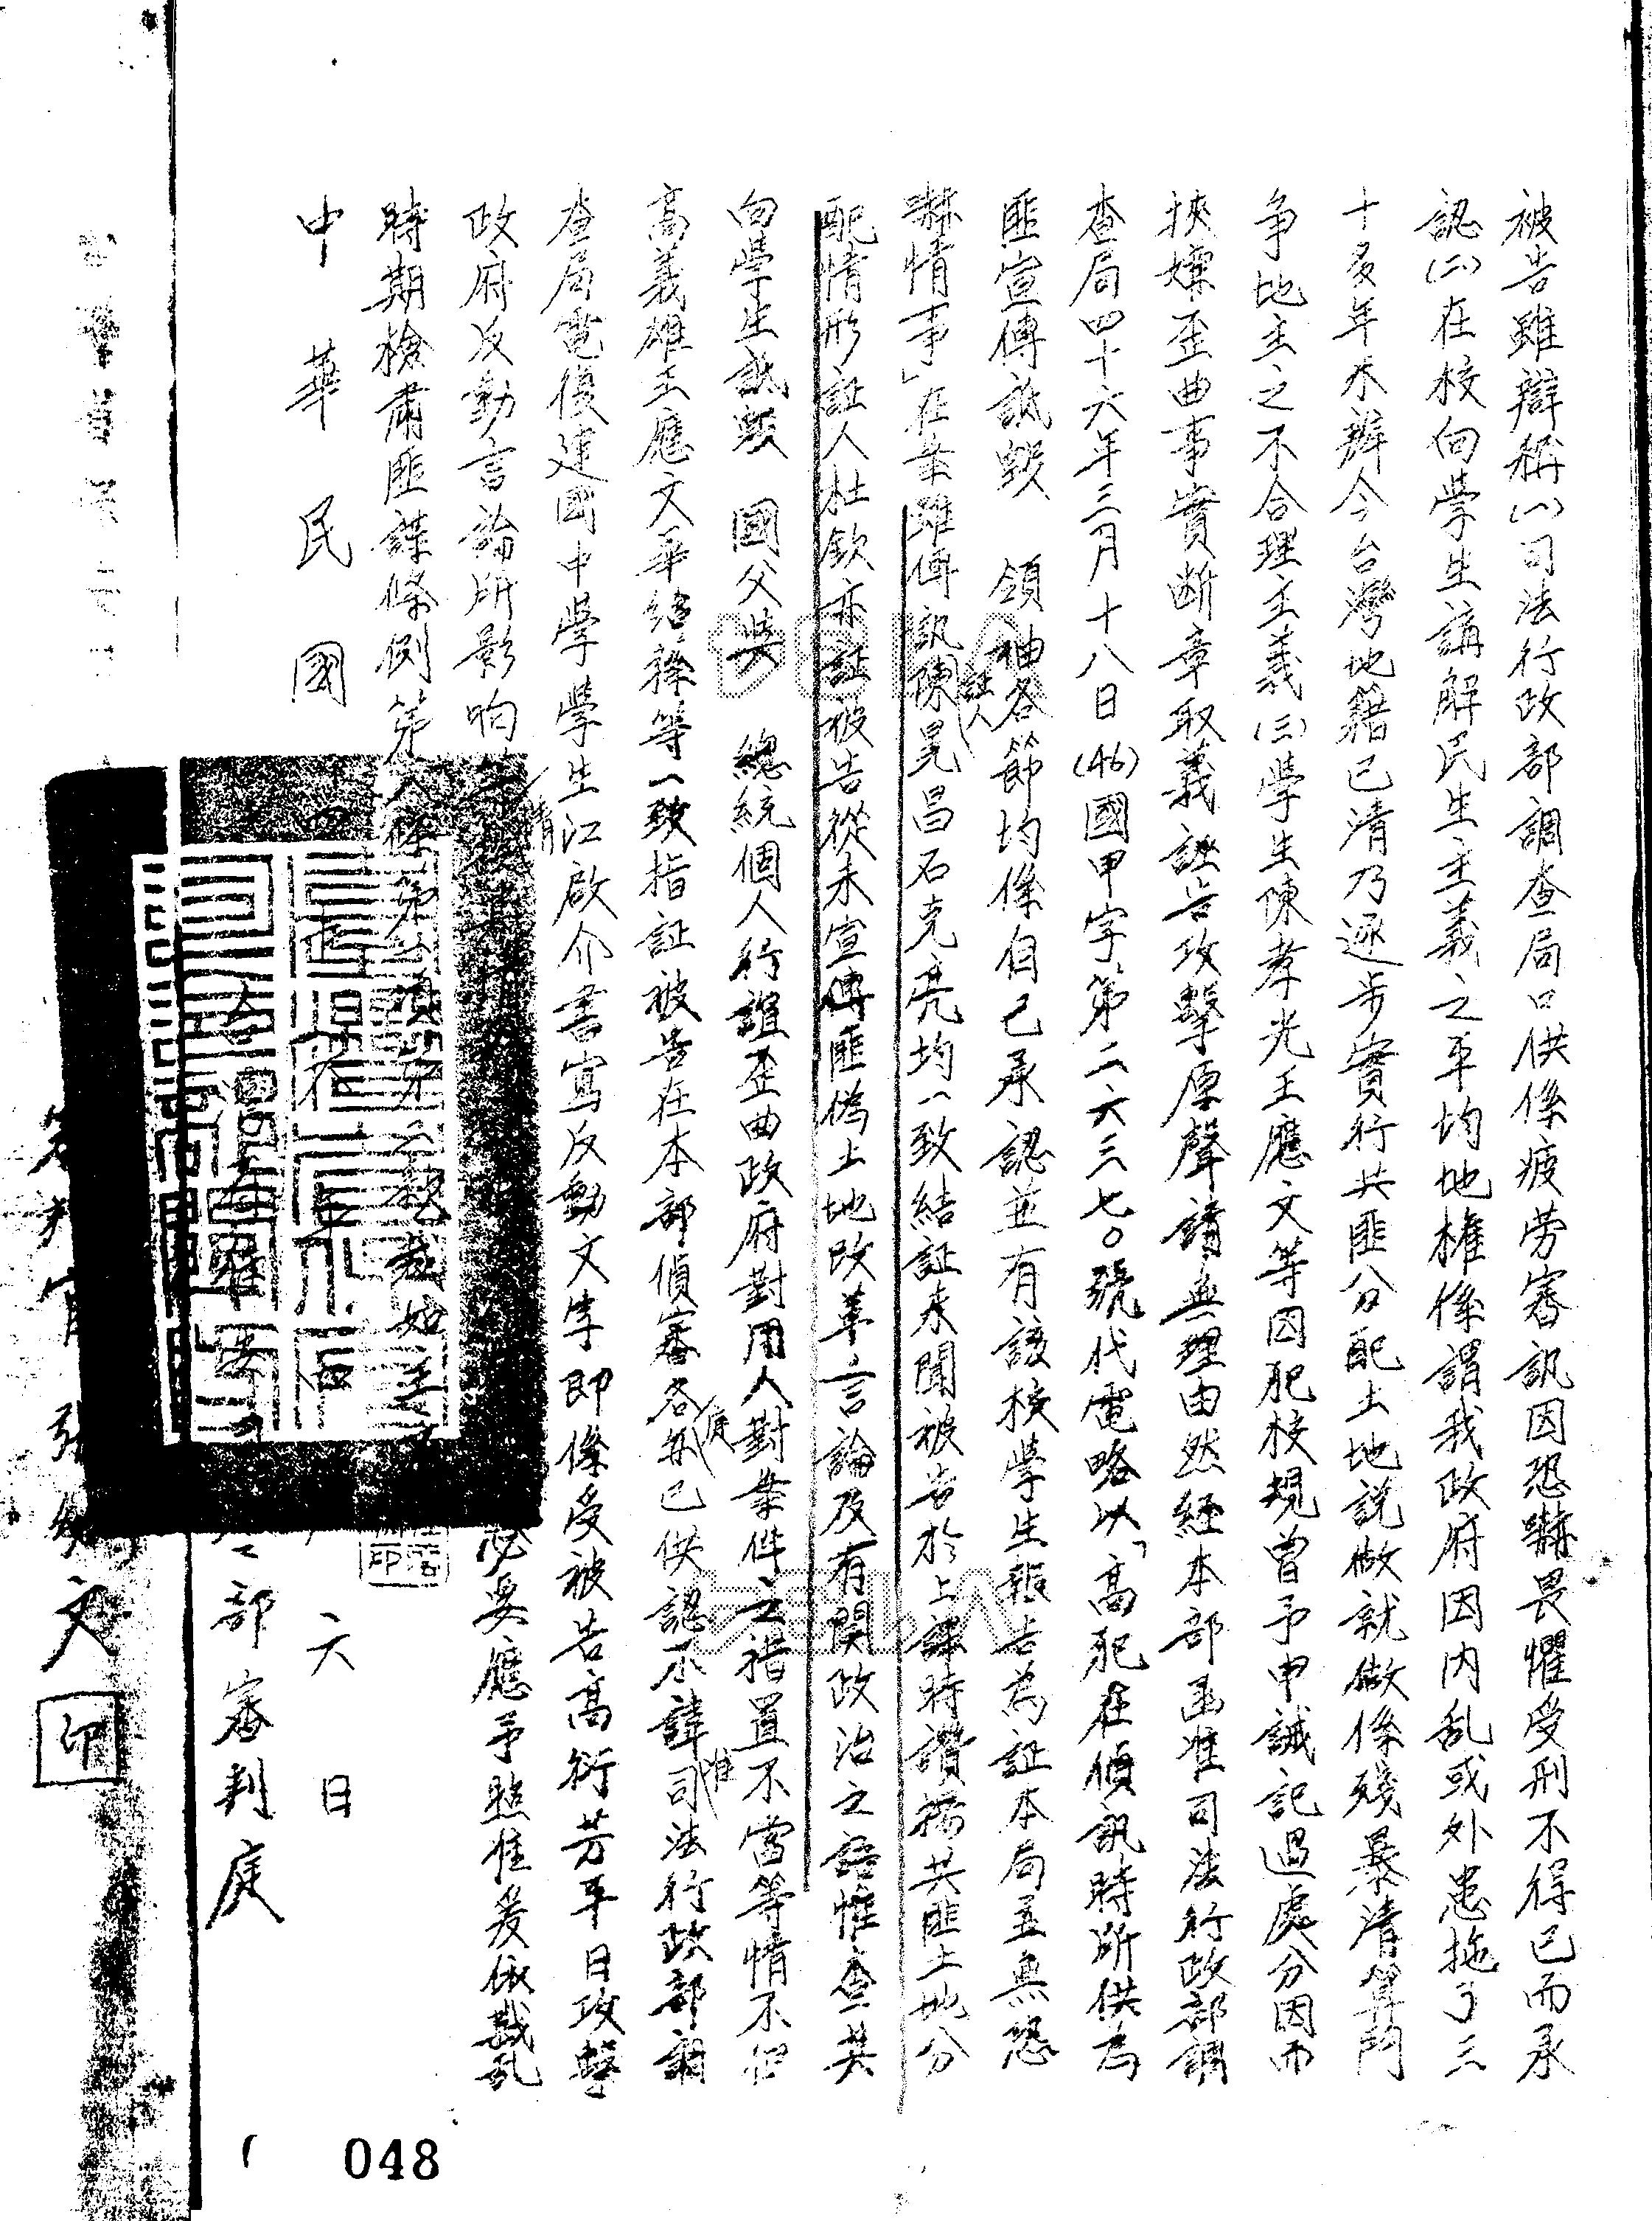 被告雖辯稱(一)司法行政部調查局口供係疲劳審訊因恐嚇畏懼受刑不得已而承
認(二)在校向學生講解民生主義之平均地權係謂我政府因内乱或外患拖了三
十多年未辦今台灣地籍已清乃逐步實行共匪分配土地説做就做係殘暴清算鬥
争地主之不合理主義(三)學生陳孝光王應文等因犯校規曾予申誡記過處分因而
挾嫌歪曲事實断章取義誣告攻擊厚聲請無理由然経本部函准司法行政部調
查局四十六年三月十八日(46)國甲字第二六三七〇號代電略以「高犯在偵訊時所供為
匪宣傳詆毀 領袖各節均係自己承認並有該校學生報告為証本局並無恐
嚇情事」在案雖傳訊証人陳晃昌石克亮均一致結証未聞被告於上課時讚揚共匪土地分
配情形証人杜欽亦証被告從未宣傳匪偽土地改革言論及有関政治之語惟查其
向學生詆毀 國父與 總統個人行誼歪曲政府對用人對案件之措置不當等情不但
高義雄王應文 等一致指証被告在本部偵審各 已供認不諱 司法行政部調
查局電復建國中學學生江啟介書寫反動文字即係受被告高衍芳平日攻擊
政府反動言論所影响 必要應予照准爰依戡乱
時期檢肅匪諜條例第八條第 項第 款裁 如主文
中華民國 年 六日
台灣 部審判庭
張 文 印
048